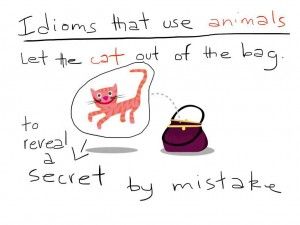 Idioms that use animals
Let the cat out of the bag.
to
reveal
a
secret by mistake